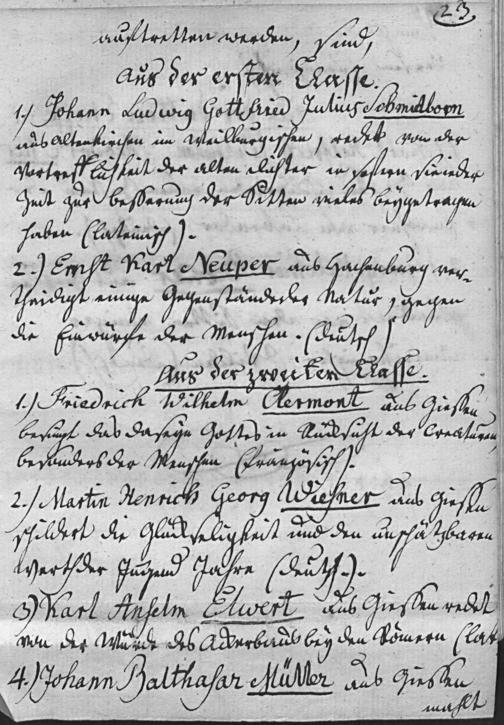 23
auftretten werden, sind,
Aus der ersten Classe.
1.) Johann Ludwig Gottfried Julius Schmidborn
aus Altenkirchen im Weilburgischen, redet von der
Vortrefflichkeit der alten dichter in sofern sie ieder
Zeit zur besserung der Sitten vieles beygetragen
haben (lateinisch).
2.) Ernst Karl Neuper aus Hachenburg ver-
theidigt einige Gegenstände der Natur, gegen
die Einwürfe der Menschen. (deutsch)
Aus der zweiten Classe.
1.) Friedrich Wilhelm Clermont aus Giessen
besingt das daseyn Gottes in Rücksicht der Creaturen,
besonders der Menschen (französisch).
2.) Martin Henrich Georg Wiesner aus Giessen
schildert die Glückseligkeit und den unschätzbaren
Werth der Jugend Jahre (deutsch.).
3) Karl Anselm Elwert aus Giessen redet
von der Würde des Ackerbaus bey den Römern (lat
4.) Johann Balthasar Müller aus Giessen
mahlt